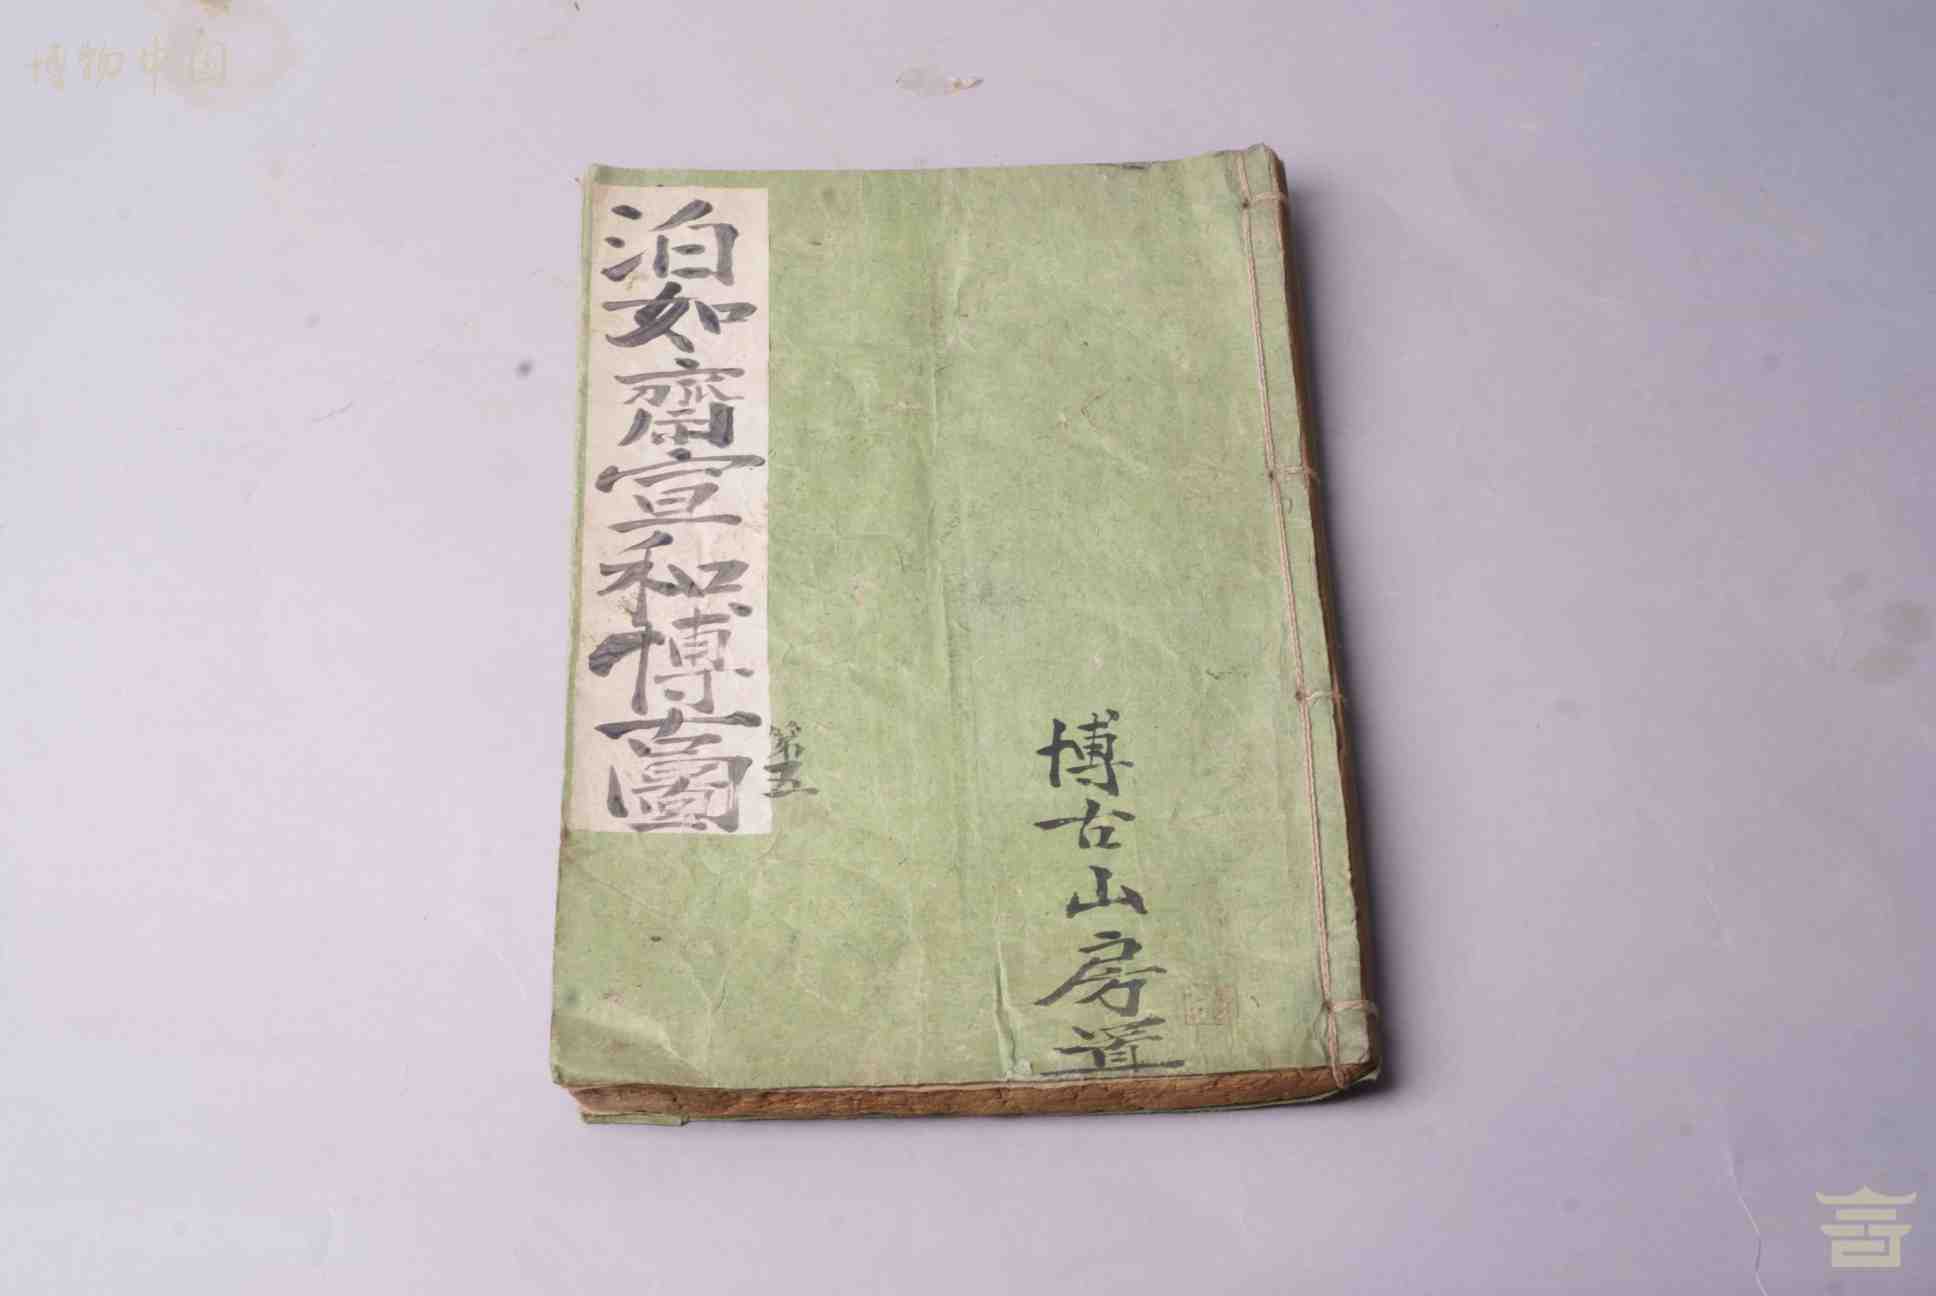 博物中国
博古山房置
泊如齋宣和博古圖
第五